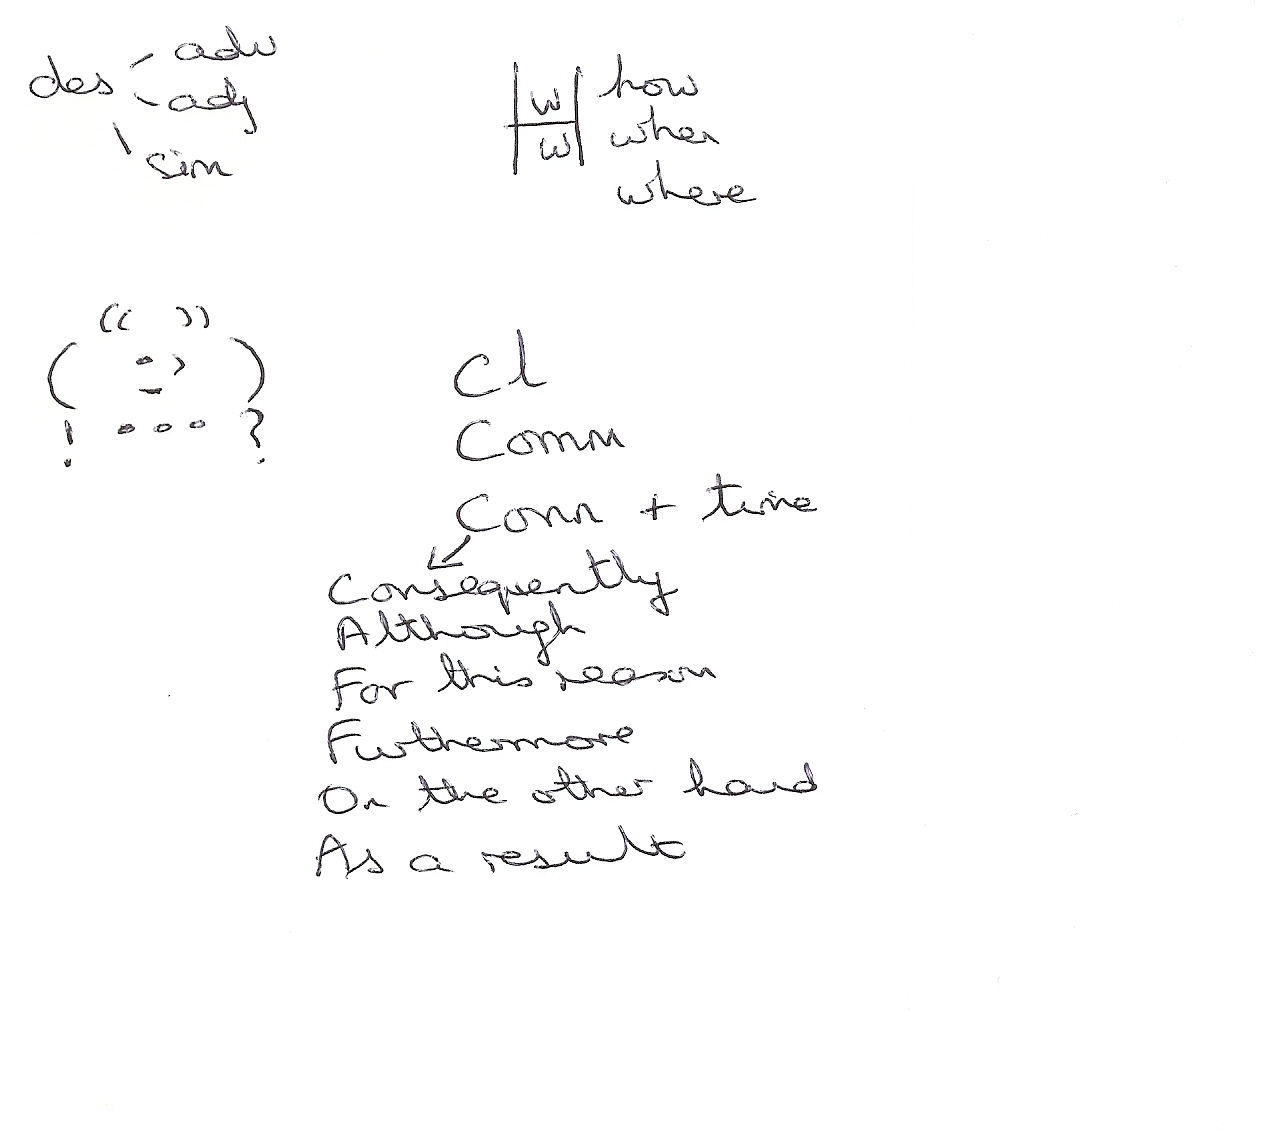 des
adv
adj
sim
W
W
how
when
where
(( ))
( • , )
-
! • • • ?
Cl
Comm
Conn + time
Consequently
Although
For this reason
Furthermore
On the other hand
As a result